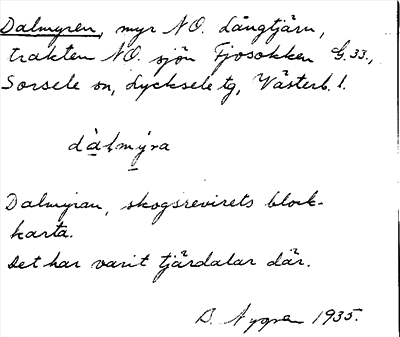 Dalmyren, myr NO. Långtjärn,
trakten NO. sjön Fjosokken G. 33.,
Sorsele sn, Lycksele tg, Västerb. l.
dàlmýra
Dalmyran, skogsrevirets block-
karta.
Det har varit tjärdalar där.
B. Nygren 1935.